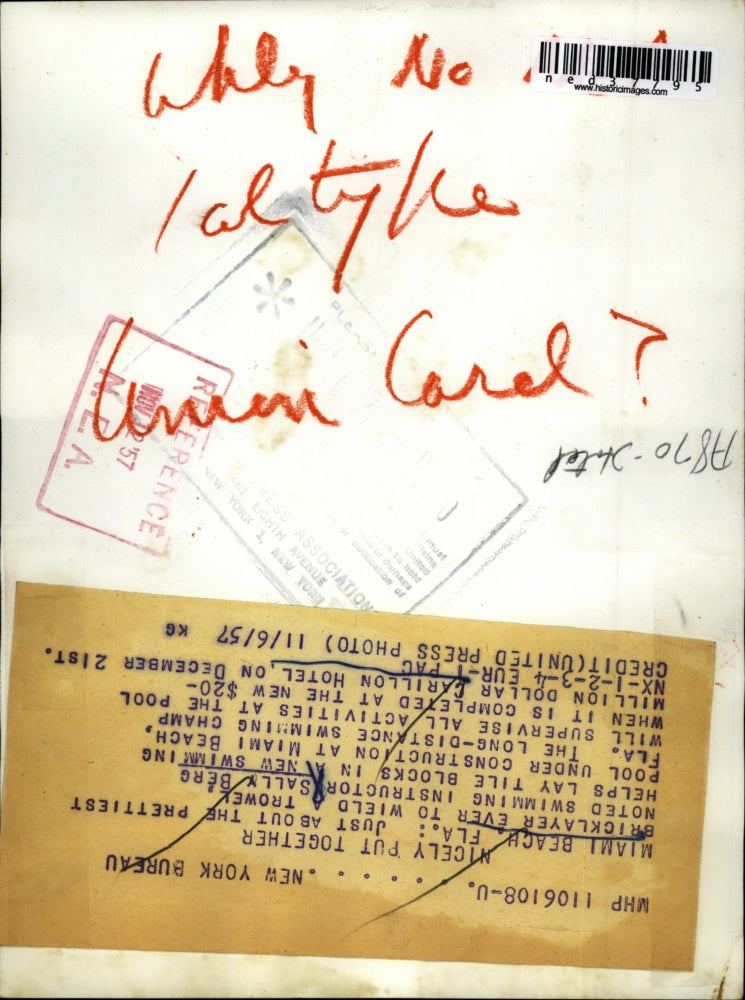 Why No
ned37795
www.historicimages.com
Union Card?
A870-Hotel
REFERENCE
NOV 12 '57
N.E.A.
PLEASE
PRESS ASSOCIATION
461 EIGHTH AVENUE
NEW YORK 1, NEW YORK
must
United
to hold
or damage
publication of
MHP 1106108-U. . . . . . . NEW YORK BUREAU
NICELY PUT TOGETHER
MIAMI BEACH, FLA.: JUST ABOUT THE PRETTIEST
BRICKLAYER EVER TO WIELD A TROWEL,
NOTED SWIMMING INSTRUCTOR SALLY BERG
HELPS LAY TILE BLOCKS IN A NEW SWIMMING
POOL UNDER CONSTRUCTION AT MIAMI BEACH,
FLA. THE LONG-DISTANCE SWIMMING CHAMP
WILL SUPERVISE ALL ACTIVITIES AT THE POOL
WHEN IT IS COMPLETED AT THE NEW $20-
MILLION DOLLAR CARILLON HOTEL ON DECEMBER 21ST.
NX-1-2-3-4 EUR-1 PAC
CREDIT(UNITED PRESS PHOTO) 11/6/57 KG